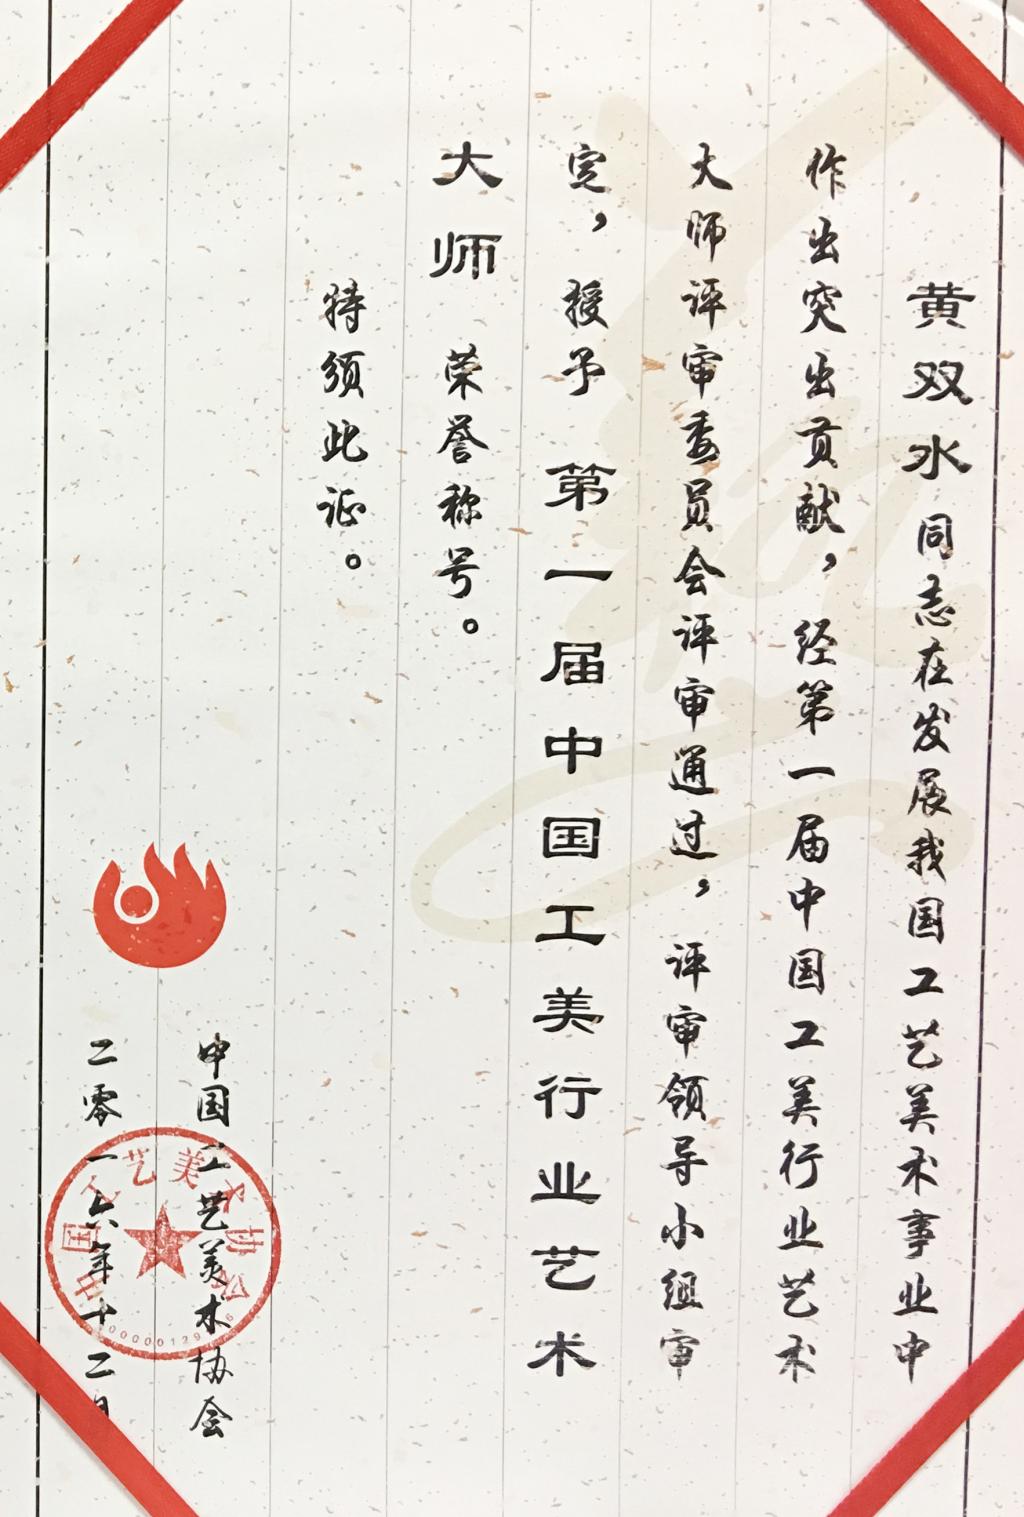 黄双水同志在发展我国工艺美术事业中
作出突出贡献，经第一届中国工美行业艺术
大师评审委员会评审通过，评审领导小组审
定，授予 第一届中国工美行业艺术
大师 荣誉称号。
特颁此证。
中国工艺美术协会
二零一六年十二月
中国工艺美术协会